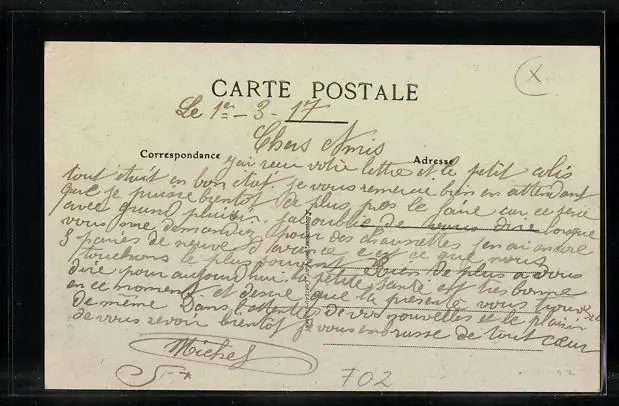 CARTE POSTALE
Le 1er - 3 - 17
Chers Amis
Correspondance
Adresse
j'ai reçu votre lettre et le petit colis
tout était en bon état. je vous remercie bien en attendant
que je puisse bientôt de plus près le faire car ce sera
avec grand plaisir. j'ai oublié de vous dire lorsque
vous me demandiez pour des chaussettes j'en ai encore
3 paires de neuve d'avance c'est ce que nous
touchons le plus souvent. Rien de plus a vous
dire pour aujourd'hui. la petite santé est très bonne
en ce moment et désire que la présente vous trouve
de même. Dans l'attente de vos nouvelles et le plaisir
de vous revoir bientôt je vous embrasse de tout cœur
Michel
702
x